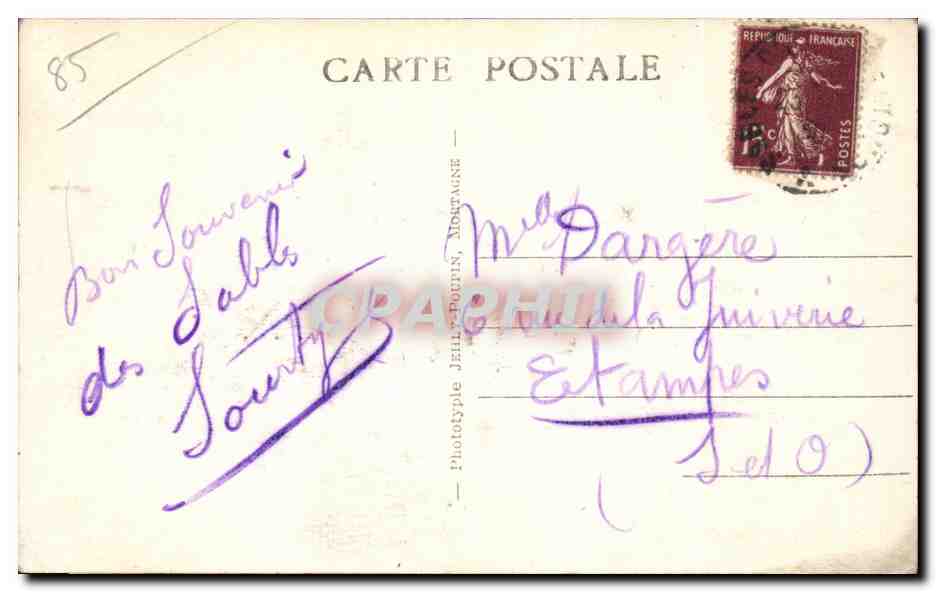 85
CARTE POSTALE
REPUBLIQUE FRANÇAISE
15 c
POSTES
Bon Souvenir
des Sables
Phototypie JEHLY-POUPIN, MORTAGNE
Mlle Dargère
6 rue de la Juiverie
Etampes
(S et O)
CPAPHIL